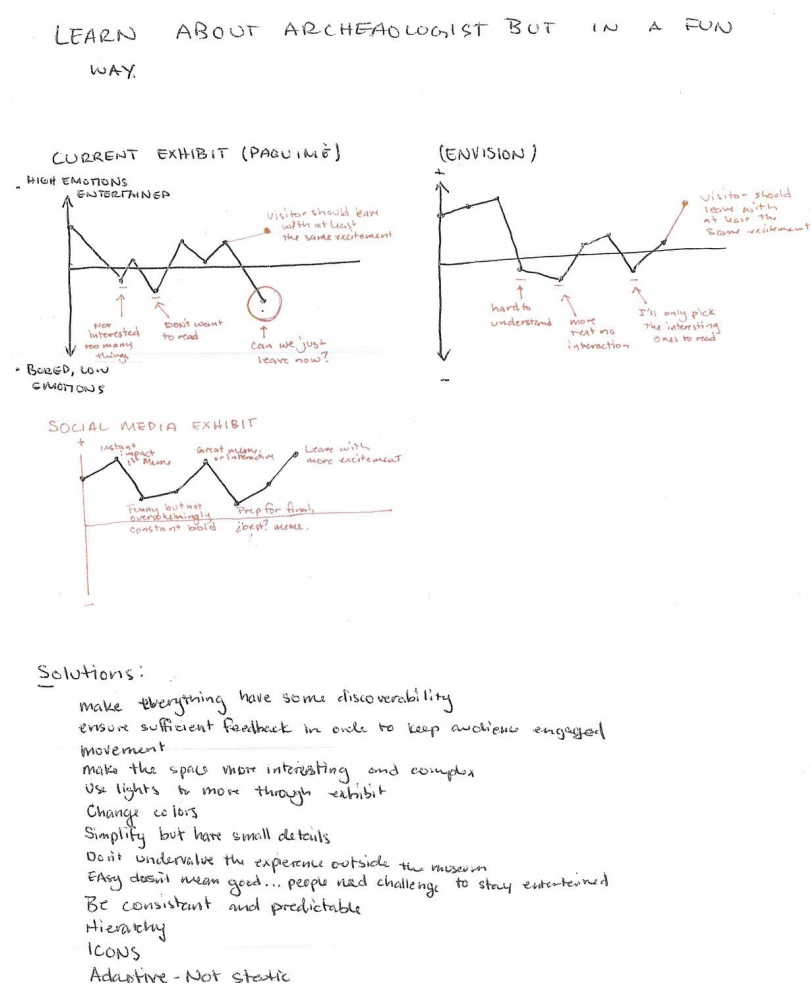 LEARN ABOUT ARCHEAOLOGIST BUT IN A FUN
WAY.
CURRENT EXHIBIT (PAQUIMÈ)
HIGH EMOTIONS
ENTERTAINED
Visitor should leave
with at least
the same excitement
Not
interested
too many
things
Don't want
to read
Can we just
leave now?
BORED, LOW
EMOTIONS
(ENVISION)
+
Visitor should
leave with
at least the
same excitement
hard to
understand
more
text no
interaction
I'll only pick
the interesting
ones to read
-
SOCIAL MEDIA EXHIBIT
+
Instant
impact
1st Meme
Great meme,
or interactive
Leave with
more excitement
Funny but not
overwhelmingly
constant bold
Prep for final,
¿best? meme.
-
Solutions:
make everything have some discoverability
ensure sufficient feedback in order to keep audience engaged
movement
make the space more interesting and complex
Use lights to move through exhibit
Change colors
Simplify but have small details
Don't undervalue the experience outside the museum
EAsy doesn't mean good... people need challenge to stay entertained
Be consistant and predictable
Hierarchy
ICONS
Adaptive - Not static